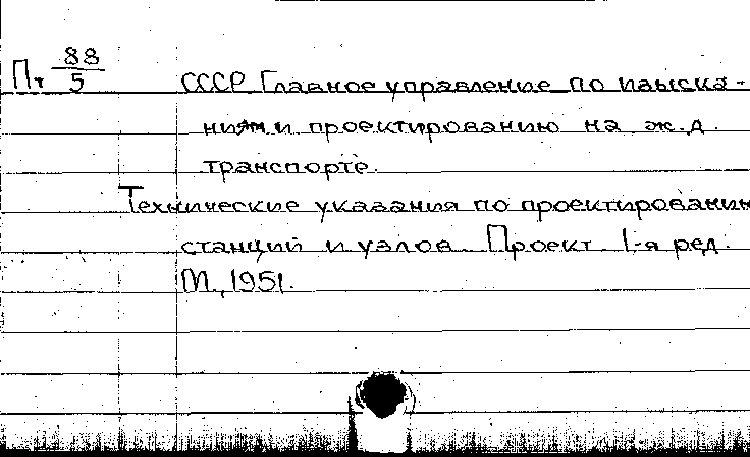 П. 88/5
СССР Главное управление по изыска-
ниям и проектированию на ж.д.
транспорте.
Технические указания по проектированию
станций и узлов. Проект 1-я ред.
М., 1951.